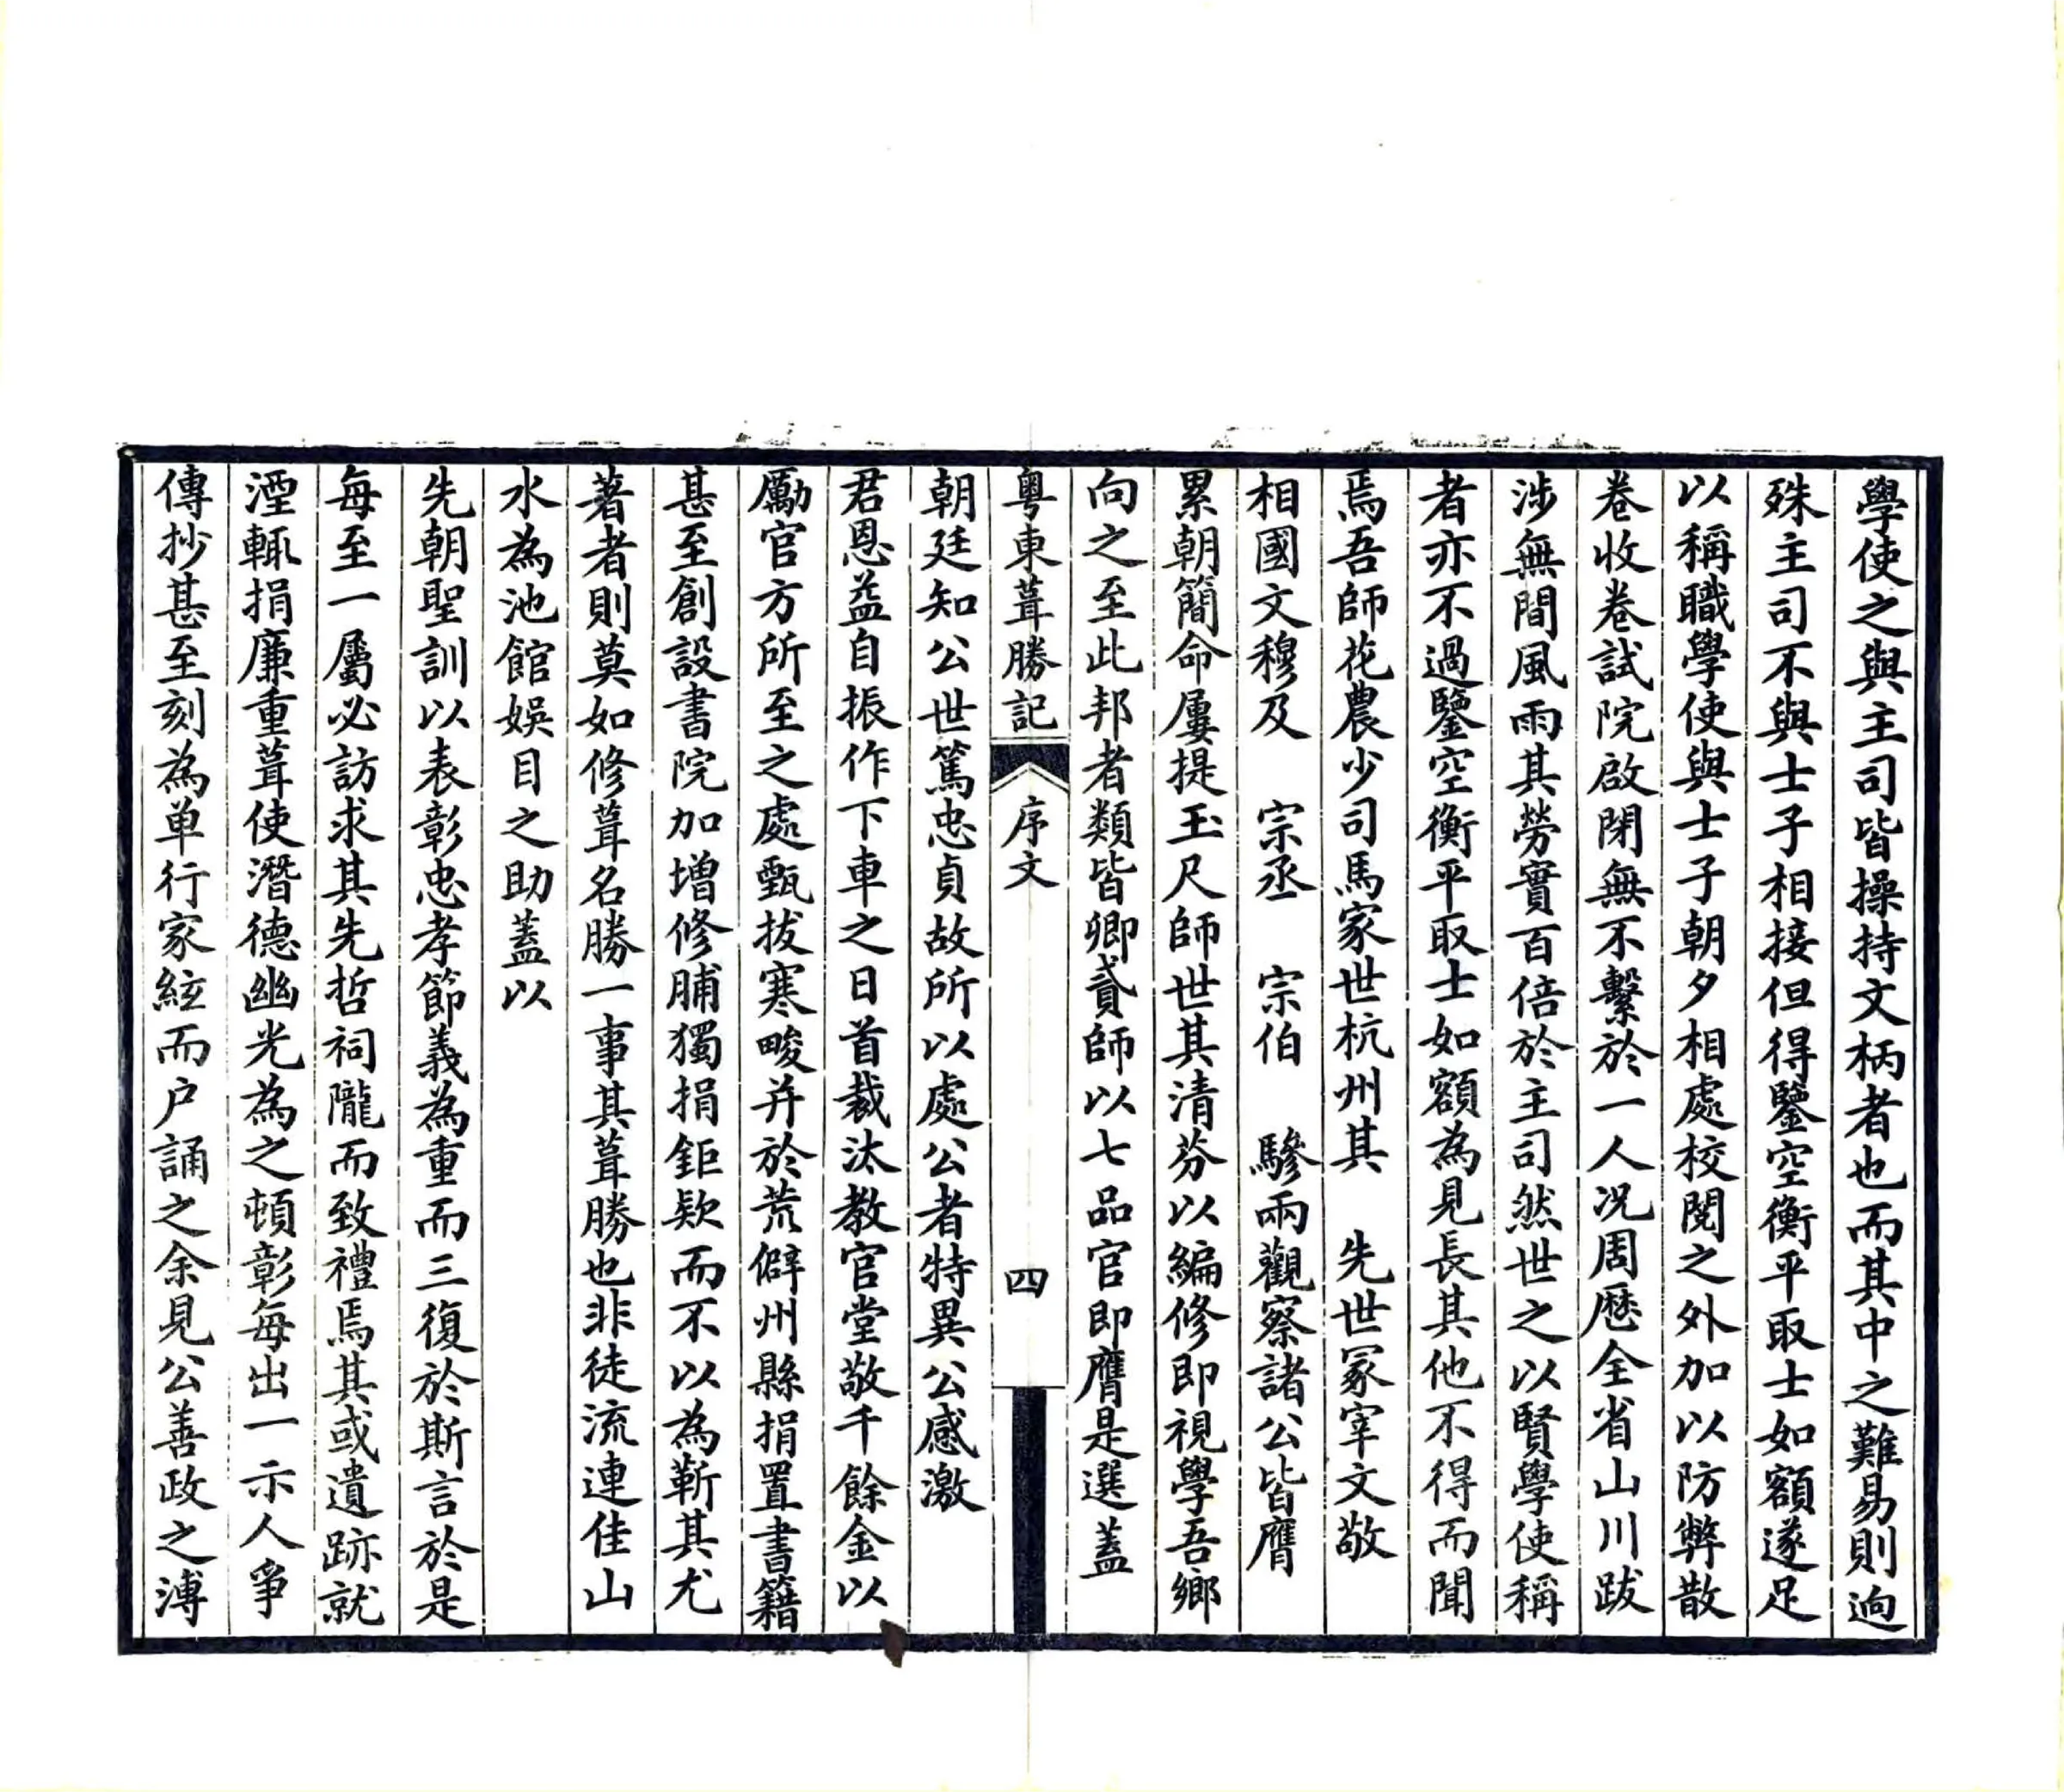 學使之與主司皆操持文柄者也而其中之難易則逈
殊主司不與士子相接但得鑒空衡平取士如額遂足
以稱職學使與士子朝夕相處校閱之外加以防弊散
卷收卷試院啟閉無不繫於一人况周歷全省山川跋
涉無間風雨其勞實百倍於主司然世之以賢學使稱
者亦不過鑒空衡平取士如額為見長其他不得而聞
焉吾師花農少司馬家世杭州其　先世冢宰文敬
相國文穆及　宗丞　宗伯　驂兩觀察諸公皆膺
累朝簡命屢提玉尺師世其清芬以編修即視學吾鄉
向之至此邦者類皆卿貳師以七品官即膺是選蓋
粤東葺勝記　序文　四
朝廷知公世篤忠貞故所以處公者特異公感激
君恩益自振作下車之日首裁汰教官堂敬千餘金以
勵官方所至之處甄拔寒畯并於荒僻州縣捐置書籍
甚至創設書院加增修脯獨捐鉅款而不以為靳其尤
著者則莫如修葺名勝一事其葺勝也非徒流連佳山
水為池館娛目之助蓋以
先朝聖訓以表彰忠孝節義為重而三復於斯言於是
每至一屬必訪求其先哲祠隴而致禮焉其或遺跡就
湮輒捐廉重葺使潛德幽光為之頓彰每出一示人爭
傳抄甚至刻為单行家絃而户誦之余見公善政之溥